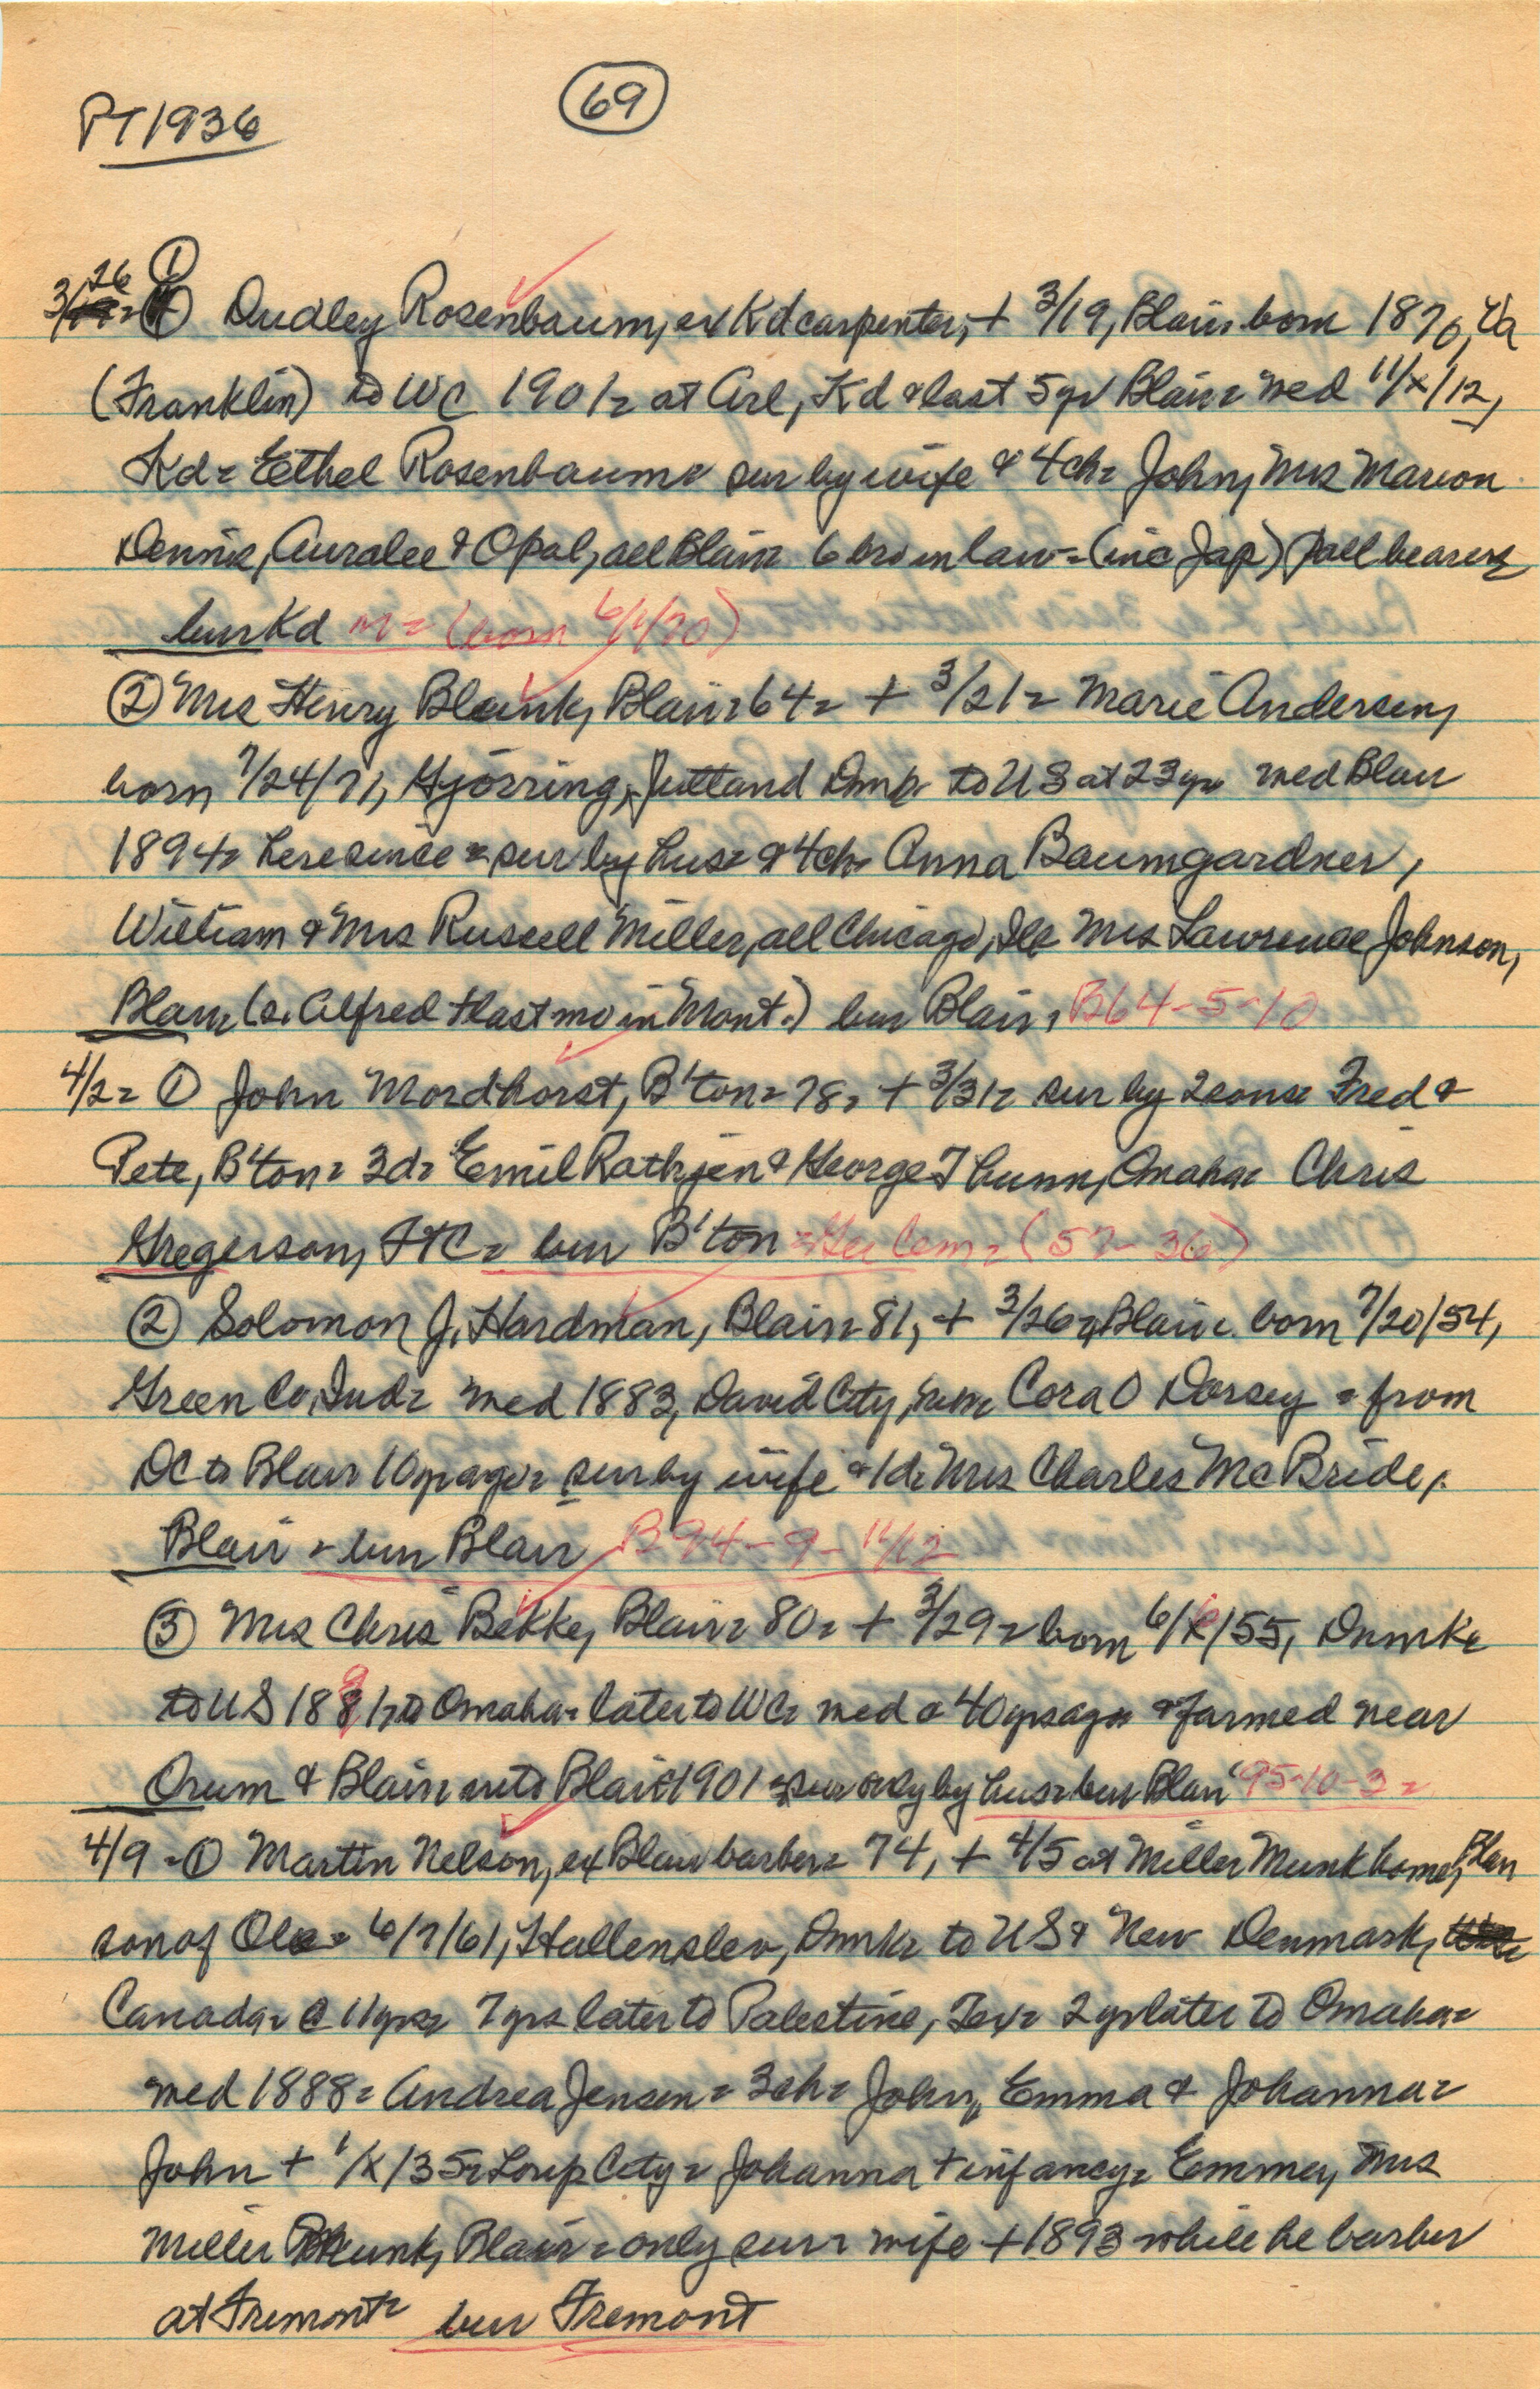 PT 1936
69
3/26 ① Dudley Rosenbaum, ex Kd carpenter, + 3/19, Blair born 1870, Va
(Franklin) to WC 1901 = at Arl, Kd & last 5 yr Blair = med 11/x/12,
Kd = Eethel Rosenbaum sur by wife & 4 ch = John, Mrs Marion
Dennis, Auralee & Opal, all Blair 6 bro in law = (inc Jap) pall bearers
bur Kd m = (born 6/1/70)
② Mrs Henry Blaunk, Blair = 64 = + 3/21 = Marie Andersen,
born 7/24/71, Hjorring, Jutland Dmk to US at 23 yr med Blair
1894 = here since = sur by hus = & 4 ch = Anna Baumgardner,
William & Mrs Russell Miller, all Chicago, Ill Mrs Lawrence Johnson,
Blair (s. Alfred + last mo in Mont.) bur Blair, B64-5-10
4/2 = ① John Mordhorst, B'ton = 78, + 3/31 = sur by 2 sons = Fred &
Pete, B'ton = 3 d = Emil Rathjen & George Thunn, Omaha = Chris
Gregerson, FTC = bur B'ton = Ger Cem = (57-36)
② Solomon J. Hardman, Blair = 81, + 3/26, Blair born 7/20/54,
Green Co, Ind = med 1883, David City, Cora O Dorsey = from
DC to Blair 10 yr ago = sur by wife & 1 d = Mrs Charles McBride,
Blair = bur Blair B94-9-11/12
③ Mrs Chris Bekke, Blair = 80 = + 3/29 = born 6/x/55, Dnmk =
to US 1881, to Omaha = later to WC = med c 40 yrs ago & farmed near
Orum & Blair ret to Blair 1901 = sur only by hus = bur Blair 95-10-3 =
4/9 = ① Martin Nelson, ex Blair barber = 74, + 4/5 at Miller Munk home, Blair
son of Ole = 6/7/61, Hallenslev, Dnmk = to US & New Denmark,
Canada = c 11 yrs = 7 yrs later to Palestine, Tex = 2 yr later to Omaha =
med 1888 = Andrea Jensen = 3 ch = John, Emma & Johanna =
John + 1/x/35 = Loup City = Johanna + infancy = Emma, Mrs
Miller Munk, Blair = only surr wife + 1893 while he barber
at Fremont = bur Fremont